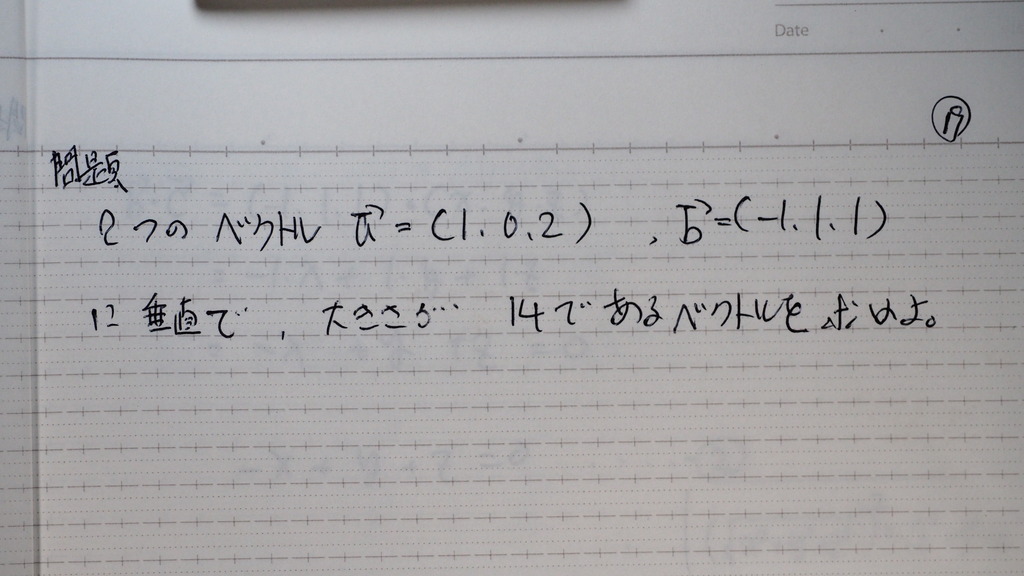 Date
⑲
問題
2つの ベクトル a→ = (1. 0. 2) , b→ = (-1. 1. 1)
に 垂直で, 大きさが 14で あるベクトルを 求めよ。